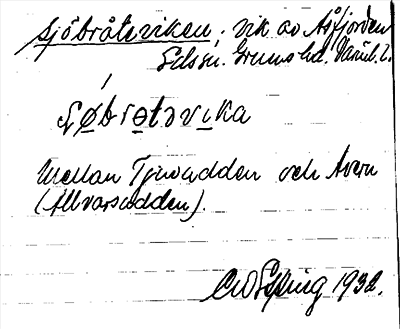 Sjöbråteviken. vik av Åsfjorden
Edssn. Grums hd. Värml. l.
sjøbrotəvika
Mellan Tjuvudden och Avern
(Allvarsudden).
1932.